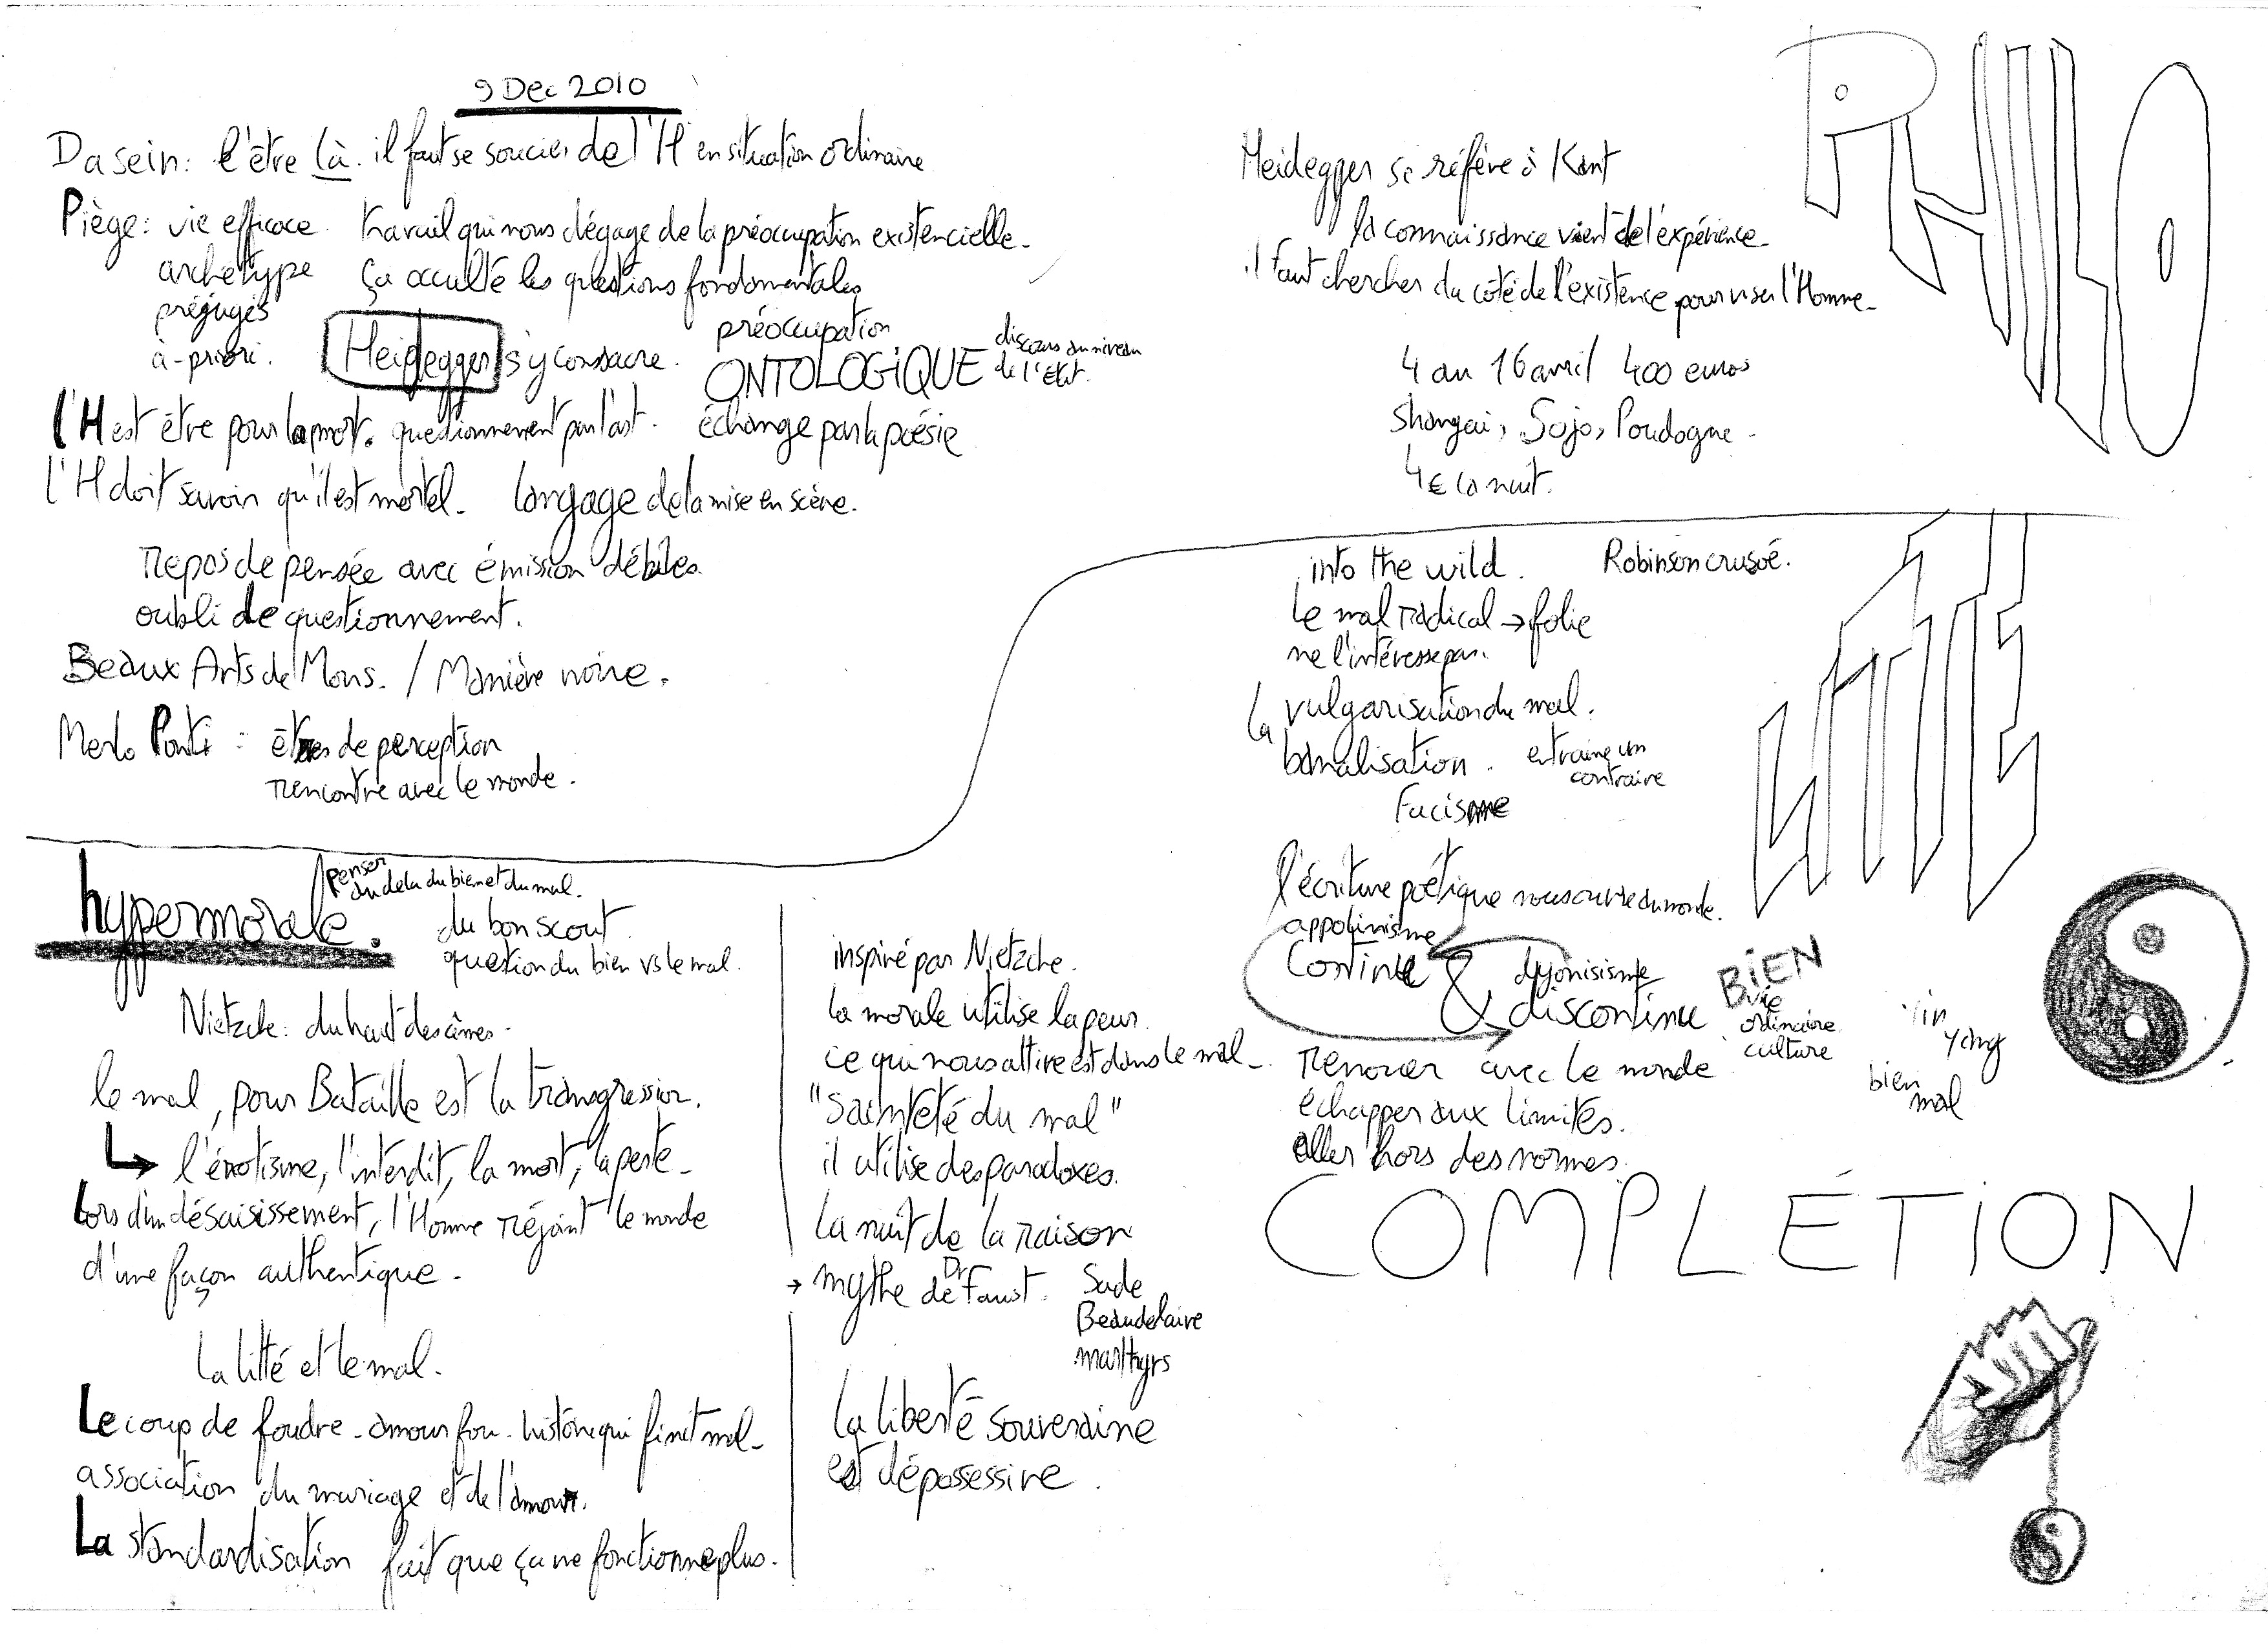 9 Dec 2010
Dasein: l'être là. il faut se soucier de l'H en situation ordinaire
Piège: vie efficace. travail qui nous dégage de la préoccupation existencielle.
archétype ça occulte les questions fondamentales
préjugés
à-priori. Heidegger s'y consacre. préoccupation
ONTOLOGIQUE discours au niveau
de l'Etat.
l'H est être pour la mort. questionnement par l'art. échange par la poésie
l'H doit savoir qu'il est mortel. langage de la mise en scène.
repos de pensée avec émission débiles.
oubli de questionnement.
Beaux Arts de Mons. / Manière noire.
Merlo Ponti : êtres de perception
rencontre avec le monde.
PHILO
Heidegger se réfère à Kant
la connaissance vient de l'expérience.
il faut chercher du côté de l'existence pour viser l'Homme.
4 au 16 avril 400 euros
Shangai, Sojo, Poudogne.
4€ la nuit.
hypermorale. penser
au dela du bien et du mal.
du bon scout
question du bien vs le mal.
Nietzche: du haut des cimes.
le mal, pour Bataille est la transgression.
↳ l'érotisme, l'interdit, la mort, la perte.
Lors d'un désaisissement, l'Homme réjoint le monde
d'une façon authentique.
La litté et le mal.
Le coup de foudre. amour fou. histoire qui finit mal.
association du mariage et de l'amour.
La standardisation fait que ça ne fonctionne plus.
inspiré par Nietzche.
la morale utilise la peur.
ce qui nous attire est dans le mal.
"sainteté du mal"
il utilise des paradoxes.
la nuit de la raison
→ mythe de Dr Faust. Sade
Beaudelaire
marthyrs
la liberté souveraine
est dépossessive.
into the wild. Robinson crusoé.
le mal radical → folie
ne l'intéresse pas.
la vulgarisation du mal.
banalisation. entraine un
contraire
Facisme
LITTÉ
l'écriture poétique nous ouvre du monde.
appolinisme
Continu & dyonisisme
discontinu
BIEN
vie
ordinaire
culture
yin
yang
bien
mal
renouer avec le monde
échapper aux limites.
aller hors des normes.
COMPLÉTION